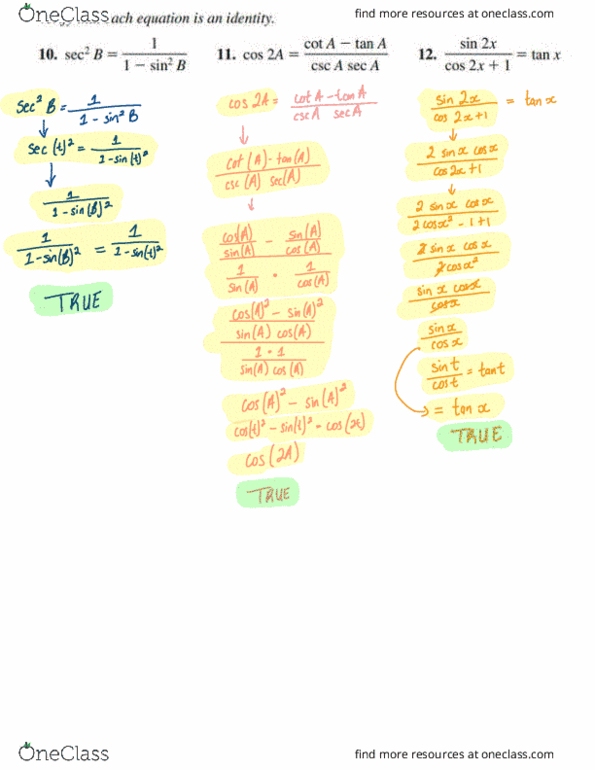 OneClass
find more resources at oneclass.com
ach equation is an identity.
10. sec² B = 1 / (1 − sin² B)
11. cos 2A = (cot A − tan A) / (csc A sec A)
12. sin 2x / (cos 2x + 1) = tan x
Sec² B = 1 / (1 - sin² B)
↓
sec (t)² = 1 / (1-sin(t)²)
↓
1 / (1-sin(B)²)
1 / (1-sin(B)²) = 1 / (1-sin(t)²)
TRUE
cos 2A = (cot A - tan A) / (csc A sec A)
↓
(cot (A) - tan(A)) / (csc (A) sec(A))
↓
(cos(A) / sin(A) - sin(A) / cos(A)) / (1 / sin(A) • 1 / cos(A))
((cos(A)² - sin(A)²) / (sin(A) cos(A))) / ((1 • 1) / (sin(A) cos(A)))
cos(A)² - sin(A)²
cos(t)² - sin(t)² = cos(2t)
cos(2A)
TRUE
sin 2x / (cos 2x+1) = tan x
↓
2 sin x cos x / (cos 2x+1)
↓
2 sin x cos x / (2 cos x² - 1 + 1)
2 sin x cos x / 2 cos x²
sin x cos x / cos x
sin x / cos x
sin t / cos t = tan t
= tan x
TRUE
OneClass
find more resources at oneclass.com